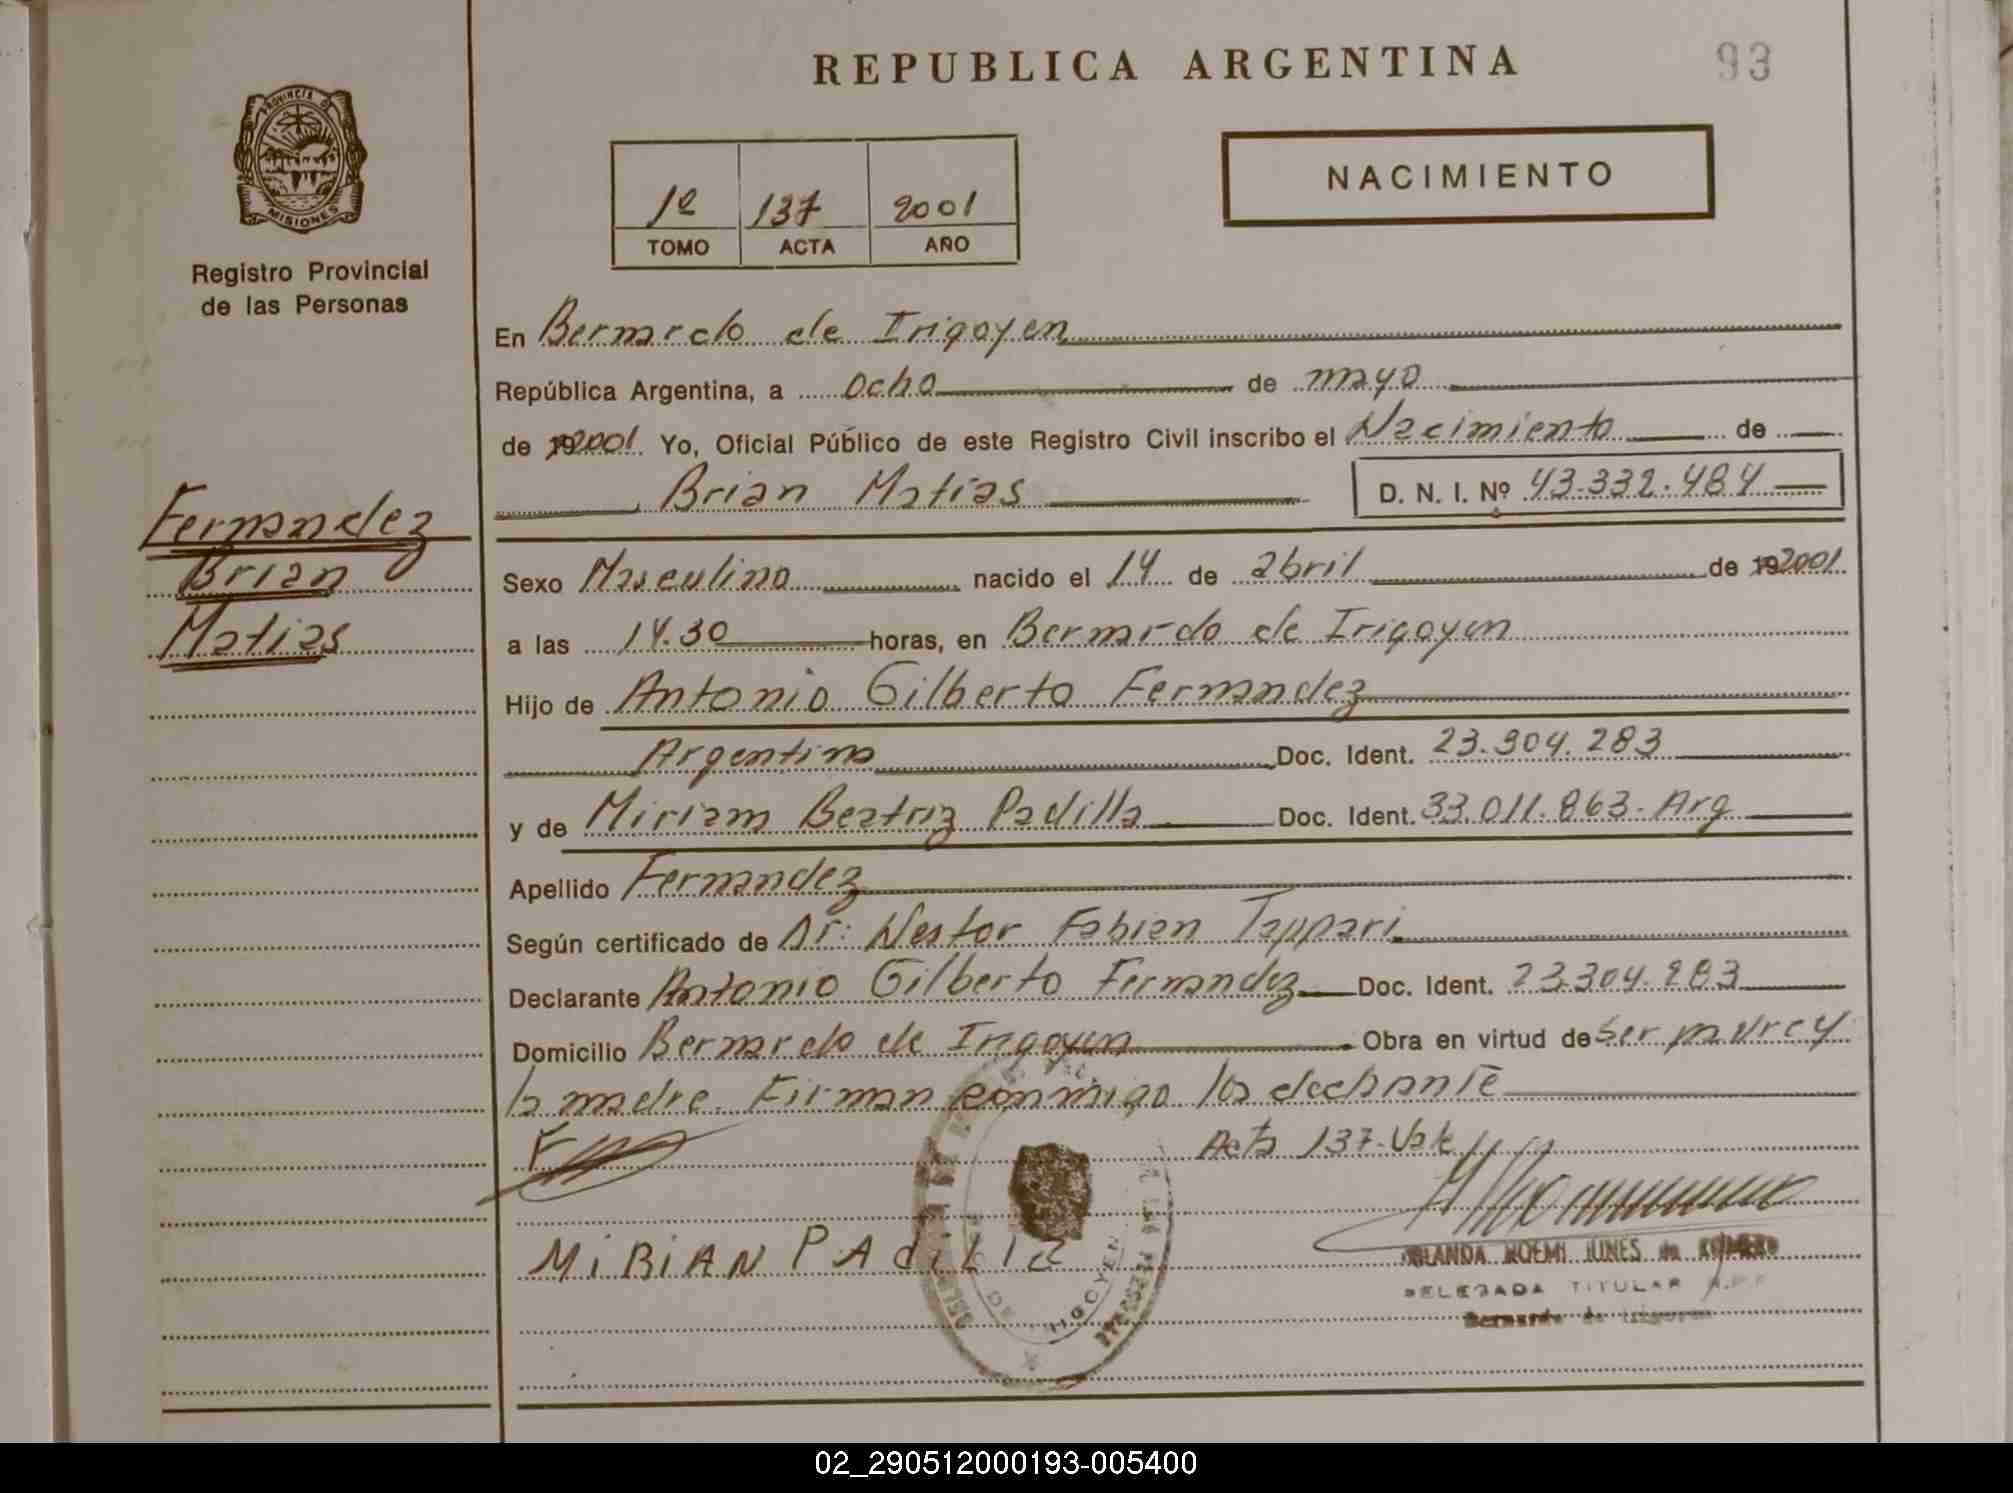 REPUBLICA ARGENTINA
93
PROVINCIA D
MISIONES
Registro Provincial
de las Personas
1º 137 2001
TOMO ACTA AÑO
NACIMIENTO
En Bernardo de Irigoyen
República Argentina, a ocho de mayo
de 2001 Yo, Oficial Público de este Registro Civil inscribo el Nacimiento de
Brian Matias D. N. I. Nº 43.332.484
Fernandez
Brian
Matias
Sexo Masculino nacido el 14 de abril de 2001
a las 14.30 horas, en Bernardo de Irigoyen
Hijo de Antonio Gilberto Fernandez
Argentino Doc. Ident. 23.304.283
y de Miriam Beatriz Padilla Doc. Ident. 33.011.863. Arg
Apellido Fernandez
Según certificado de Dr: Nestor Fabian Tappari
Declarante Antonio Gilberto Fernandez Doc. Ident. 23.304.283
Domicilio Bernardo de Irigoyen Obra en virtud de ser padre y
la madre. Firman conmigo los
Acta 137. Vale
MiRiAN PAdilla
NOEMI de
DELEGADA TITULAR
Bernardo de Irigoyen
02_290512000193-005400